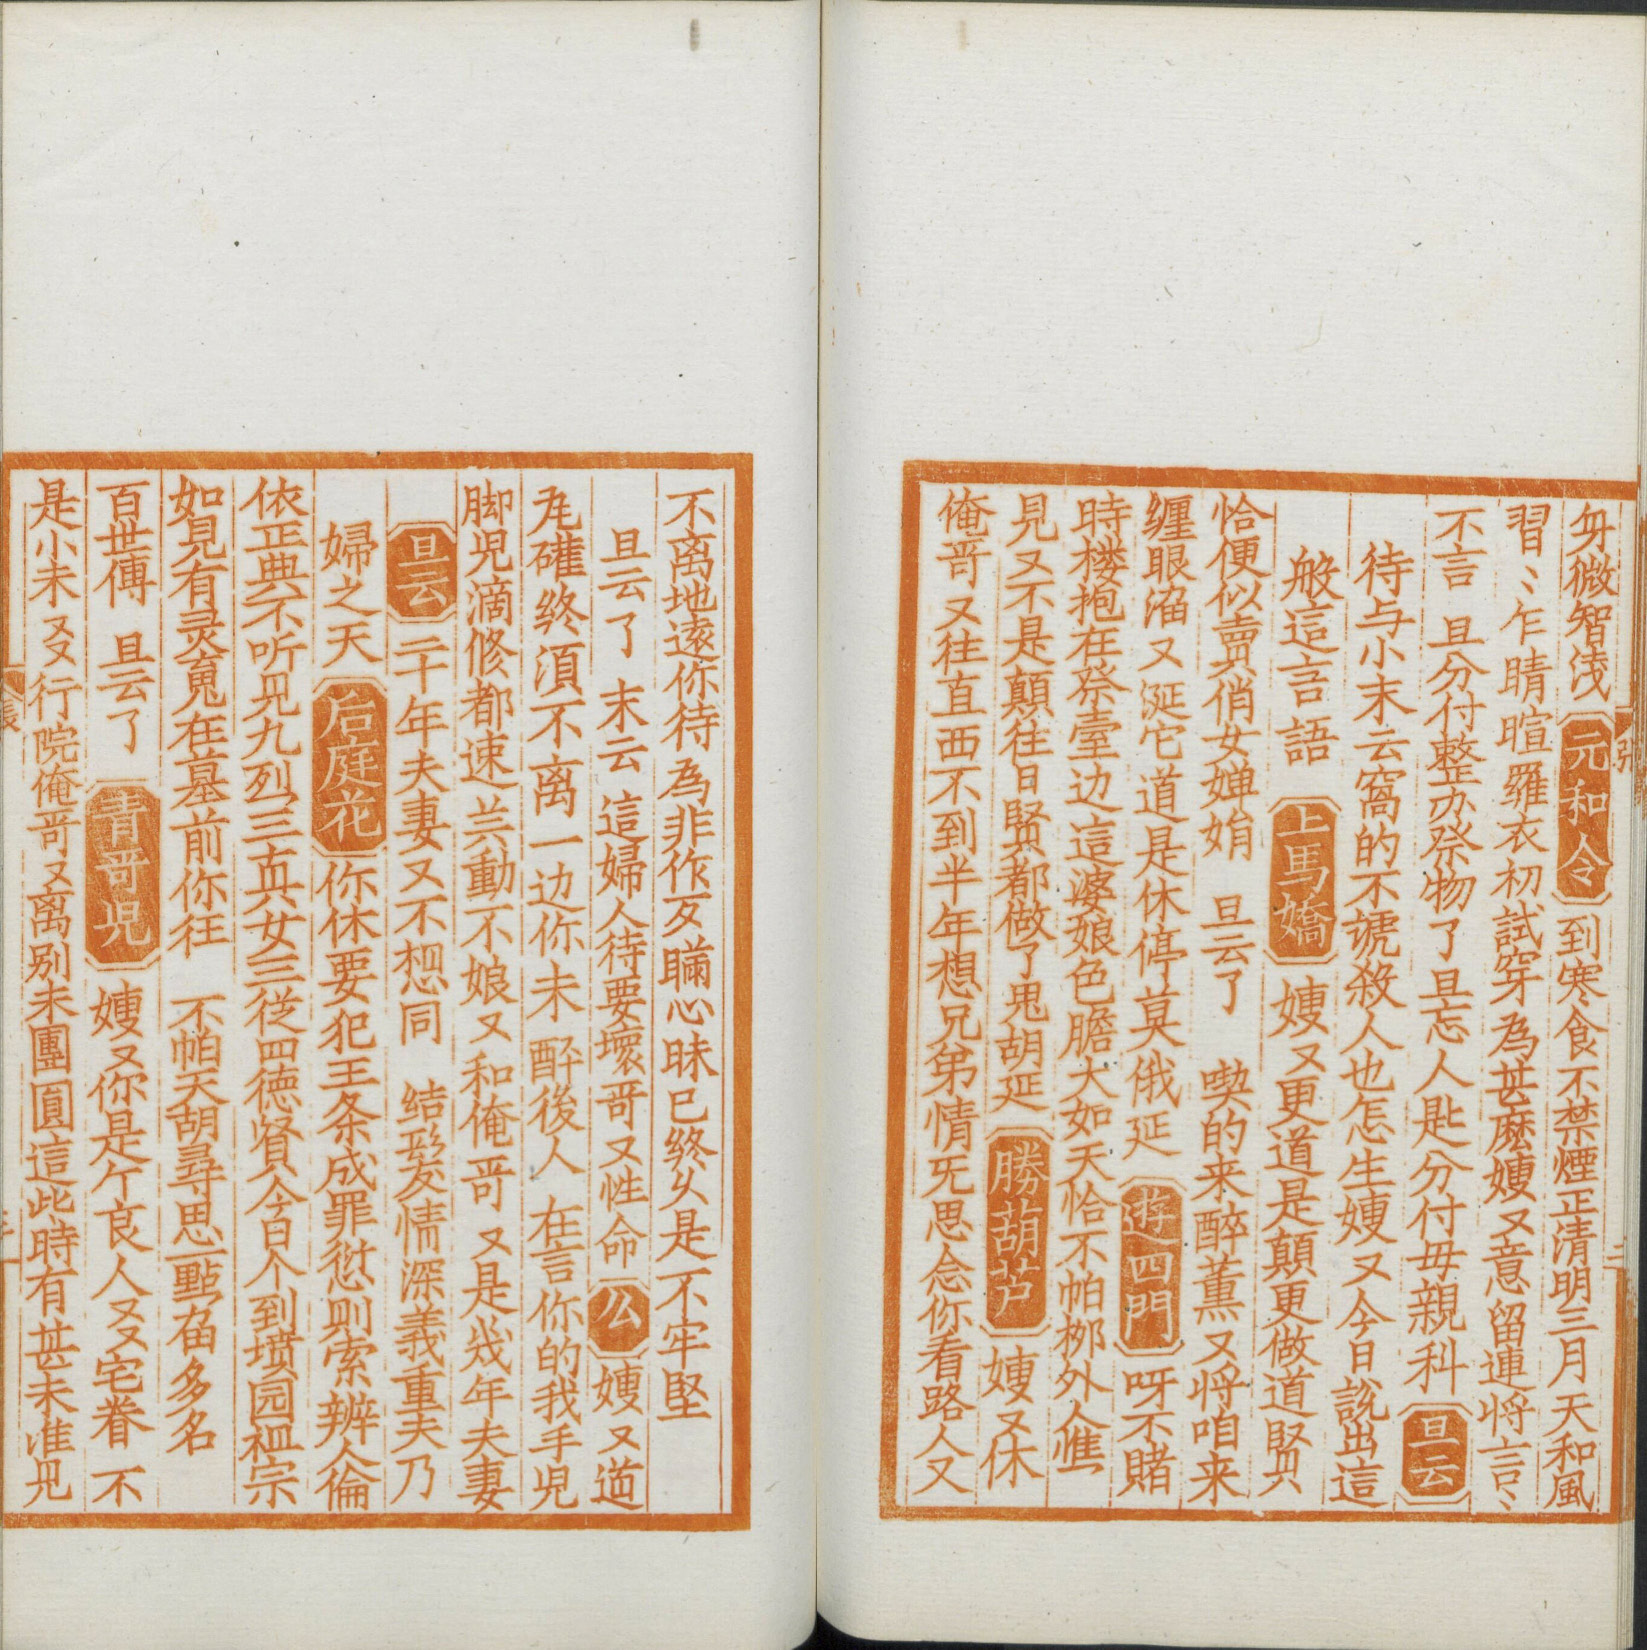 毋微智浅 元和令 到寒食不禁煙正清明三月天和風
習〻乍晴暄羅衣初試穿為甚麽嫂又意留連将言〻
不言 旦分付整办祭物了旦忘人匙分付毋親科 旦云
待与小末云窩的不諕殺人也怎生嫂又今日說出這
般這言語 上馬嬌 嫂又更道是顛更做道賢
恰便似賣俏女婵娟 旦云了 喫的来醉薰又将咱来
缠眼溜又涎它道是休停莫俄延 遊四門 呀不賭
時楼抱在祭臺边這婆娘色膽大如天恰不帕梛外人惟
見又不是顛往日賢都做了鬼胡延 勝葫芦 嫂又休
俺哥又往直西不到半年想兄弟情旡思念你看路人又
不离地遠你待為非作歹瞞心昧已終乆是不牢堅
旦云了 末云 這婦人待要壞哥又性命 公 嫂又道
凥礶終湏不离一边你未 醉後人 在言你的我手児
脚児滴修都速兰動不娘又和俺哥 又是㡬年夫妻
旦云 二十年夫妻又不想同 结髮情深義重夫乃
婦之天 后庭花 你休要犯王条成罪愆则索辨人倫
依正典不听見九烈三真女三従四徳贤今日个到墳园祖宗
如見有灵䰟在墓前你往 不帕天胡尋思一㸃留多名
百世傳 旦云了 青哥児 嫂又你是个良人又又宅眷 不
是小末又又行院俺哥又离别未團圓這些時有甚未准见